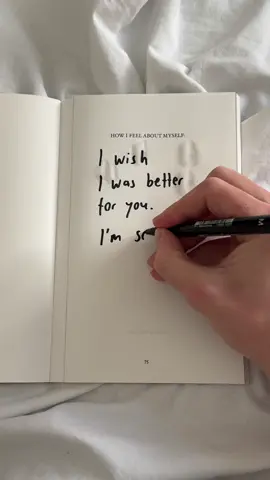 HOW I FEEL ABOUT MYSELF:
I wish
I was better
for you.
I'm